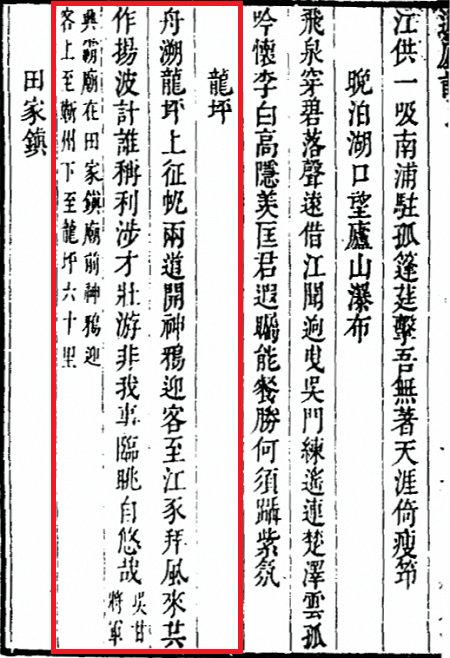 江供一吸南浦駐孤篷莛擊吾無著天涯倚瘦筇
晚泊湖口望廬山瀑布
飛泉穿碧落聲遠借江聞逈曳吳門練遙連楚澤雲孤
吟懷李白高隱美匡君遐矚能餐勝何須躡紫氛
龍坪
舟溯龍坪上征帆兩道開神鴉迎客至江豕拜風來共
作揚波計誰稱利涉才壯游非我事臨眺自悠哉吳甘將軍
興霸廟在田家鎮廟前神鴉迎
客上至蘄州下至龍坪六十里
田家鎮